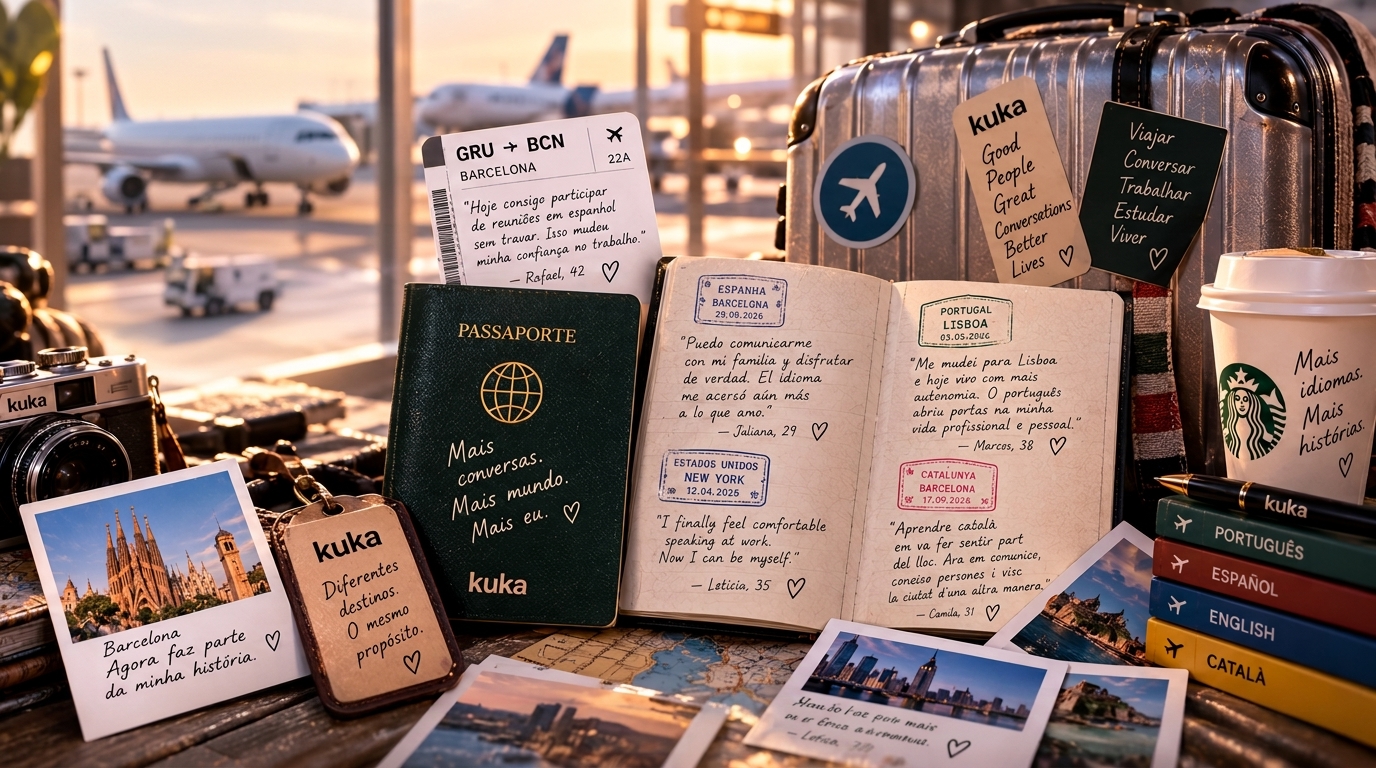 GRU → BCN
BARCELONA
22A
"Hoje consigo participar
de reuniões em espanhol
sem travar. Isso mudeu
minha confiança no trabalho."
— Rafael, 42
PASSAPORTE
Mais
conversas.
Mais mundo.
Mais eu.
kuka
ESPANHA
BARCELONA
29.08.2026
"Puedo comunicarme
con mi familia y disfrutar
de verdad. El idioma
me acersó aún más
a lo que amo."
— Juliana, 29
ESTADOS UNIDOS
NEW YORK
12.04.2026
"I finally feel comfortable
speaking at work.
Now I can be myself."
— Letícia, 35
PORTUGAL
LISBOA
03.05.2026
"Me mudei para Lisboa
e hoje vivo com mais
autonomia. O português
abriu portas na minha
vida profissional e pessoal."
— Marcos, 38
CATALUNYA
BARCELONA
17.09.2026
"Aprendre català
em va fer sentir part
del lloc. Ara em comunice,
coneiso persones i visc
la ciutat d'una altra manera."
— Camila, 31
kuka
Good
People
Great
Conversations
Better
Lives
Viajar
Conversar
Trabalhar
Estudar
Viver
Mais
idiomas.
Mais
histórias.
kuka
PORTUGUÊS
ESPAÑOL
ENGLISH
CATALÀ
kuka
Barcelona
Agora faz parte
da minha história.
kuka
Diferentes
destinos.
O mesmo
propósito.
mais